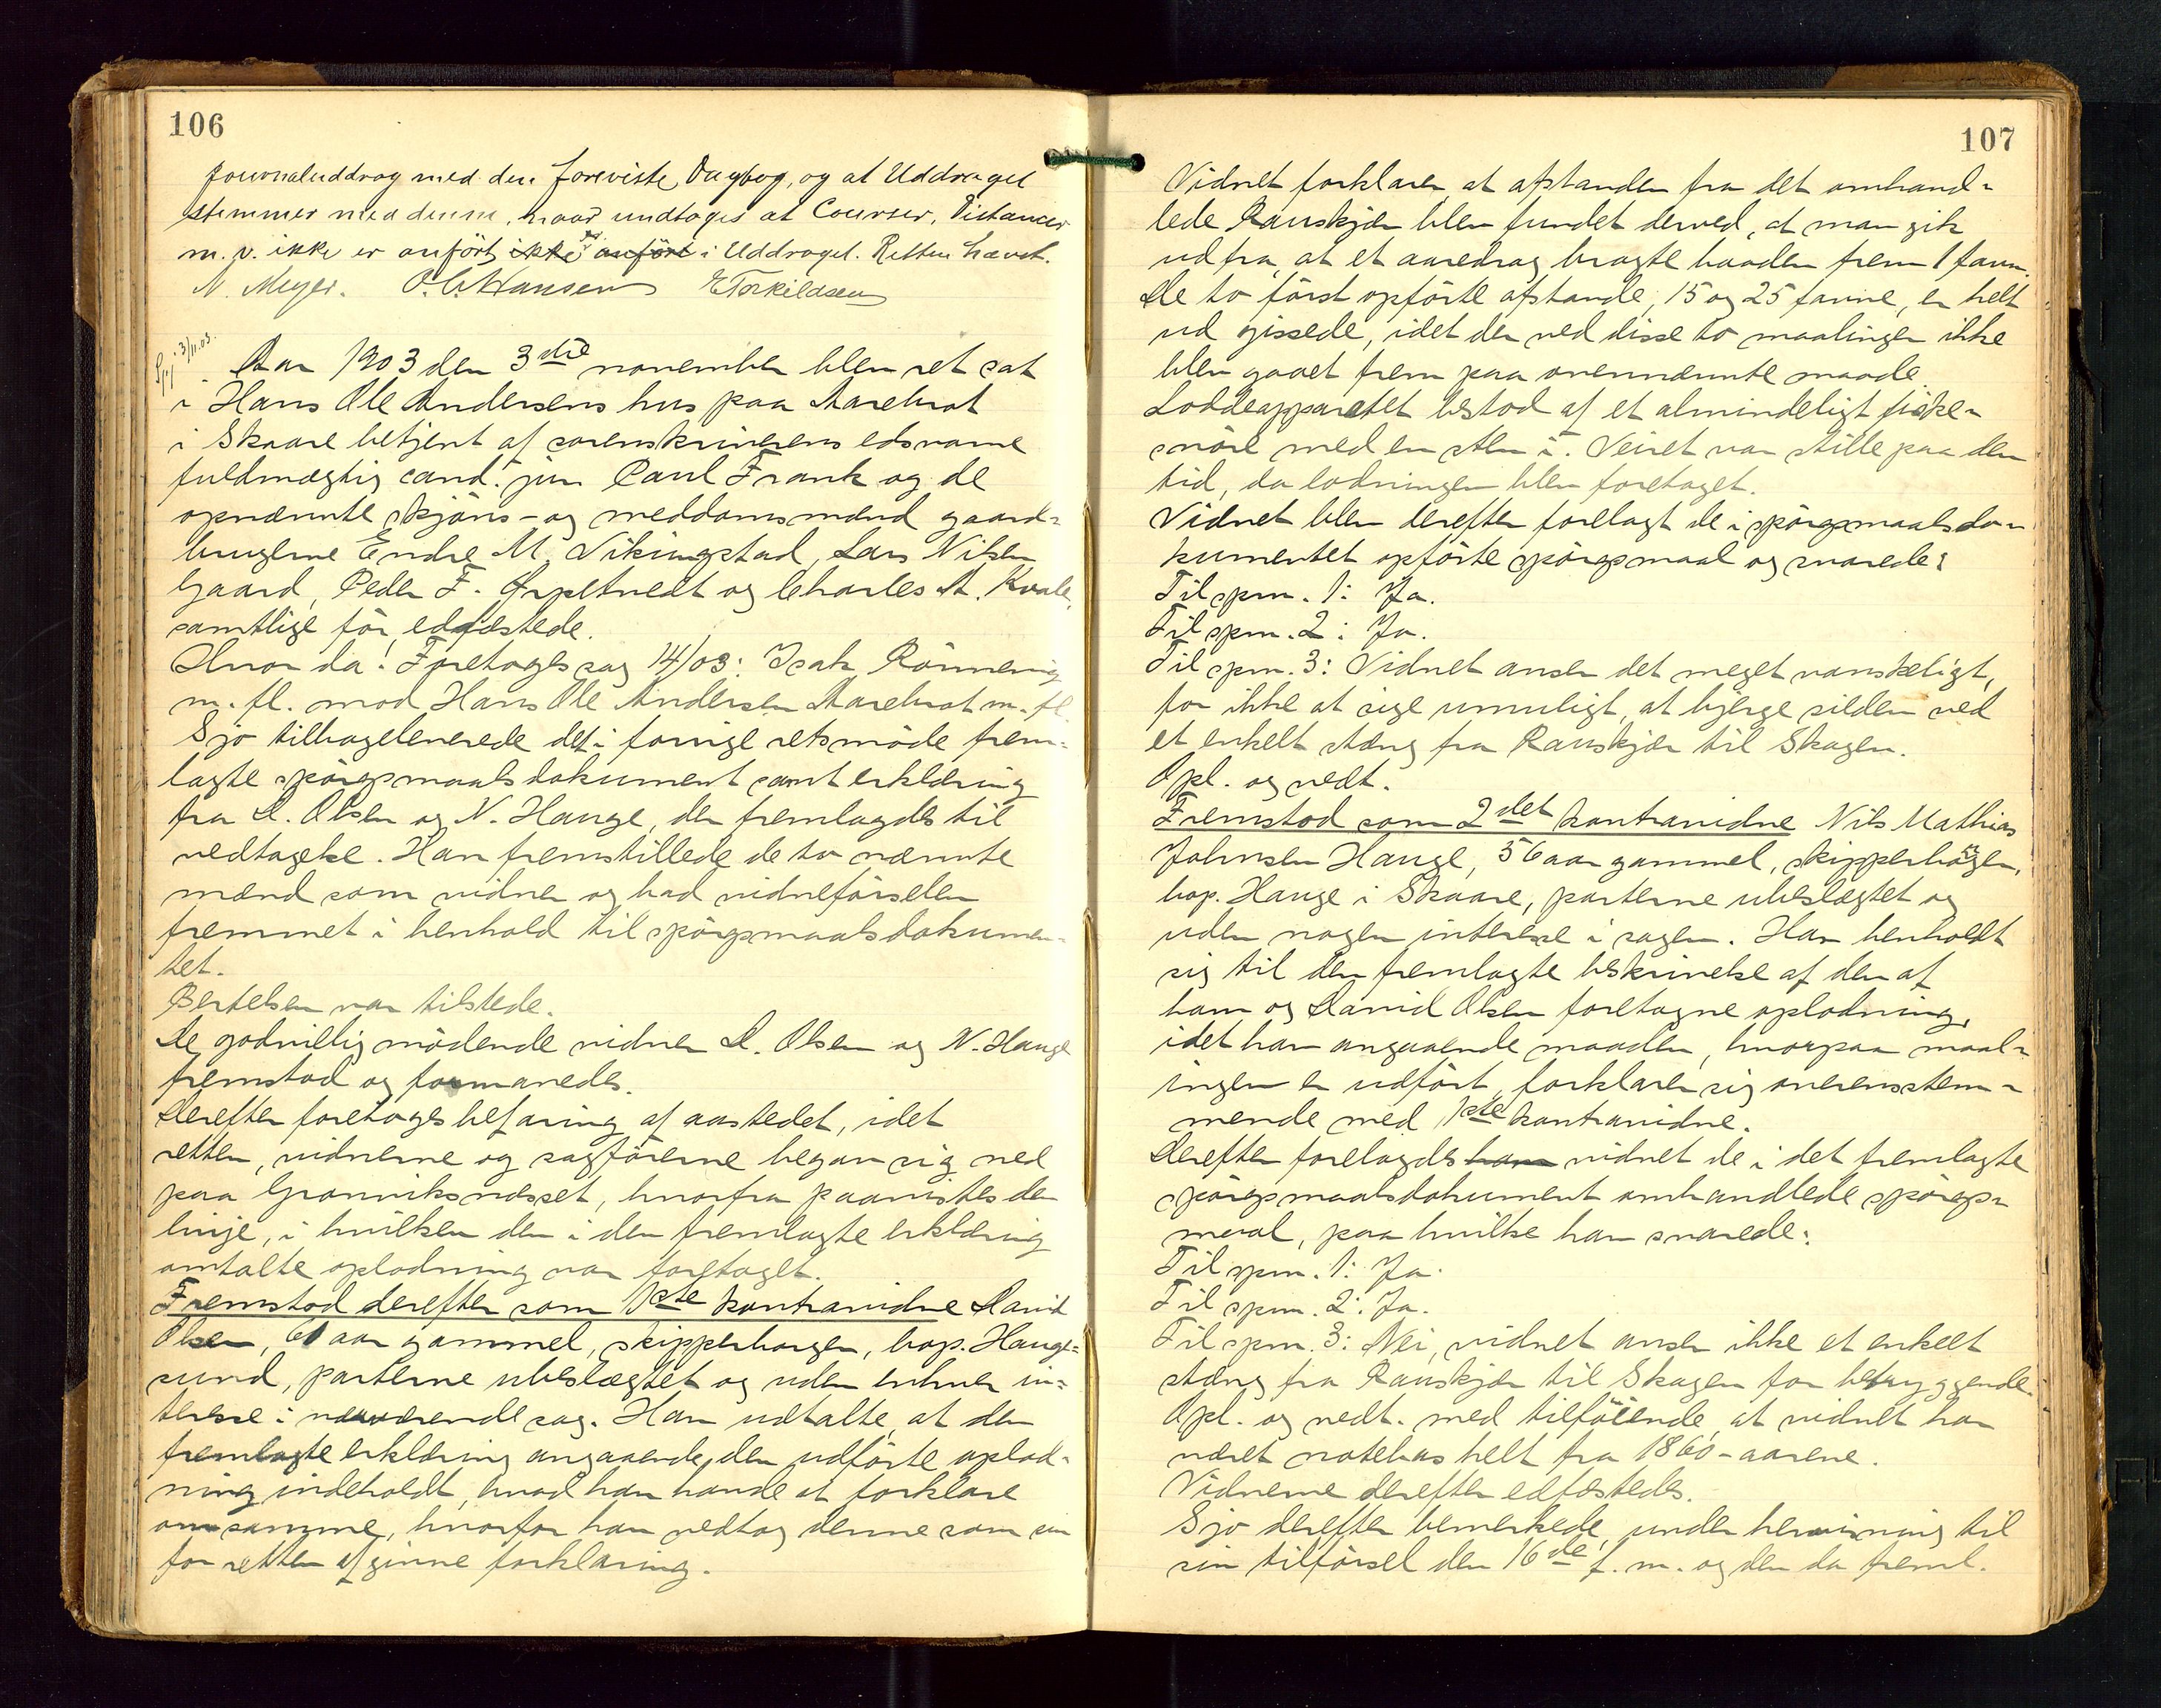 106
Journaluddrag med den foreviste Dagbog, og at Uddraget
stemmer med denne, naar undtages at Courser, Distancer
m. v. ikke er anført ikke anført i Uddraget. Retten hævet.
N. Meyer. O. C. Hansen E Torkildsen
3/11.03.
Aar 1903 den 3die november blev ret sat
i Hans Ole Andersens hus paa Aarebrot
i Skaare betjent af sorenskriverens edsvorne
fuldmægtig cand. jur. Paul Frank og de
opnævnte skjöns- og meddomsmænd gaard-
brugerne Endre M. Vikingstad, Lars Nilsen
Gaard, Peder F. Ørpetvedt og Charles A. Kvale,
samtlige för edfæstede.
Hvor da! Foretoges sag 14/03: Isak Rönnevig
m. fl. mod Hans Ole Andersen Aarebrot m. fl.
Sjo tilbageleverede det i forrige retsmöde frem-
lagte spörgsmaalsdokument samt erklæring
fra D. Olsen og N. Hauge, der fremlagdes til
vedtagelse. Han fremstillede de to nævnte
mænd som vidner og bad vidneförselen
fremmet i henhold til spörgsmaalsdokumen-
tet.
Bertelsen var tilstede.
De godvillig mödende vidner D. Olsen og N. Hauge
fremstod og formanedes.
Derefter foretoges befaring af aastedet, idet
retten, vidnerne og sagförerne begav sig ned
paa Grønviksnæsset, hvorfra paavistes den
linje, i hvilken den i den fremlagte erklæring
omtalte oplodning var foretaget.
Fremstod derefter som 1ste kontravidne David
Olsen, 60 aar gammel, skipperborger, bop. Hauge-
sund, parterne ubeslægtet og uden enhver in-
teresse i nærværende sag. Han udtalte, at den
fremlagte erklæring angaaende den udförte oplod-
ning indeholdt, hvad han havde at forklare
om samme, hvorfor han vedtog denne som sin
for retten afgivne forklaring.
107
Vidnet forklarer, at afstanden fra det omhand-
lede Rauskjær blev fundet derved, at man gik
ud fra, at et aaredrag bragte baaden frem 1 favn.
De to först opförte afstande, 15 og 25 favne, er helt
ud gissede, idet der ved disse to maalinger ikke
blev gaaet frem paa ovennævnte maade.
Loddeapparatet bestod af et almindeligt fiske-
snöre med en sten i. Veiret var stille paa den
tid, da lodningen blev foretaget.
Vidnet blev derefter forelagt de i spörgsmaalsdo-
kumentet opförte spörgsmaal og svarede:
Til spm. 1: Ja.
Til spm. 2: Ja.
Til spm. 3: Vidnet anser det meget vanskeligt,
for ikke at sige umuligt, at bjerge silden ved
et enkelt stæng fra Rauskjær til Skagen.
Opl. og vedt.
Fremstod som 2det kontravidne Nils Mathias
Johnsen Hauge, 56 aar gammel, skipperborger,
bop. Hauge i Skaare, parterne ubeslægtet og
uden nogen interesse i sagen. Han henholdt
sig til den fremlagte beskrivelse af den af
ham og David Olsen foretagne oplodning,
idet han angaaende maaden, hvorpaa maal-
ingen er udfört, forklarer sig overensstem-
mende med 1ste kontravidne.
Derefter forelagdes ham vidnet de i det fremlagte
spörgsmaalsdokument omhandlede spörgs-
maal, paa hvilke han svarede:
Til spm. 1: Ja.
Til spm. 2: Ja.
Til spm. 3: Nei, vidnet anser ikke et enkelt
stæng fra Rauskjær til Skagen for betryggende.
Opl. og vedt. med tilföiende, at vidnet har
været notebas helt fra 1860-aarene.
Vidnerne derefter edfæstedes.
Sjo derefter bemerkede, under henvisning til
sin tilförsel den 16de f. m. og den da freml.